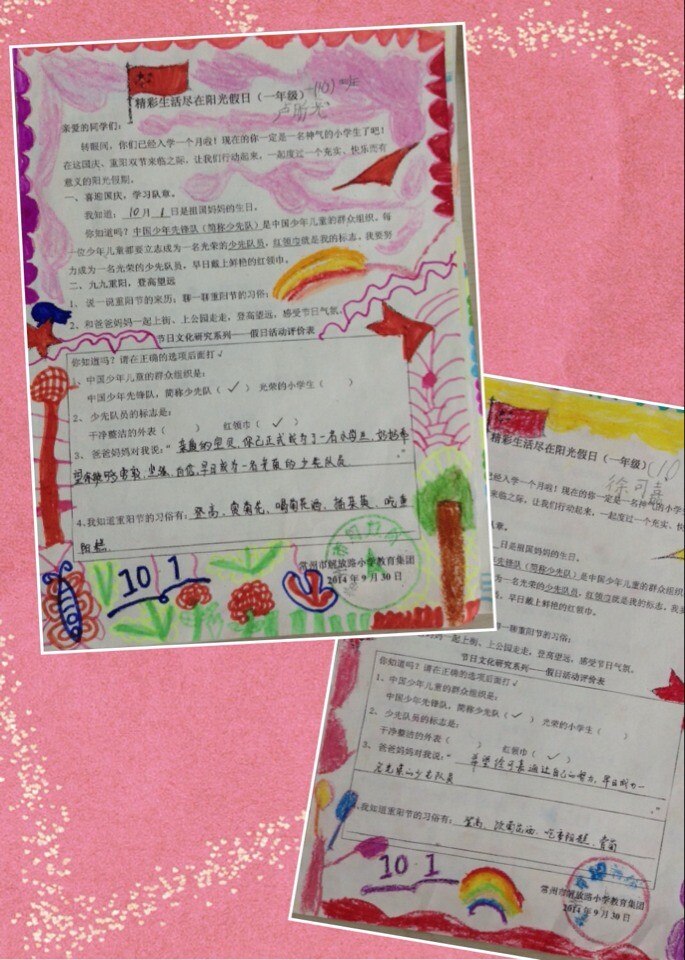 精彩生活尽在阳光假日（一年级）
亲爱的同学们：
转眼间，你们已经入学一个月啦！现在的你一定是一名神气的小学生了吧！
在这国庆、重阳双节来临之际，让我们行动起来，一起度过一个充实、快乐而有
意义的阳光假期。
一、喜迎国庆，学习队章。
我知道：10月1日是祖国妈妈的生日。
你知道吗？中国少年先锋队（简称少先队）是中国少年儿童的群众组织。每
一位少年儿童都要立志成为一名光荣的少先队员，红领巾就是我的标志。我要努
力成为一名光荣的少先队员，早日戴上鲜艳的红领巾。
二、九九重阳，登高望远
1、说一说重阳节的来历，聊一聊重阳节的习俗；
2、和爸爸妈妈一起上街、上公园走走，登高望远，感受节日气氛。
节日文化研究系列——假日活动评价表
你知道吗？请在正确的选项后面打√
1、中国少年儿童的群众组织是：
中国少年先锋队，简称少先队（✓） 光荣的小学生（ ）
2、少先队员的标志是：
干净整洁的外表（ ） 红领巾（✓）
3、爸爸妈妈对我说：“亲爱的宝贝，你已正式成为了一名小学生，妈妈希
望你能够勇敢、坚强、自信，早日成为一名光荣的少先队员
4、我知道重阳节的习俗有：登高，赏菊花，喝菊花酒，插茱萸，吃重
阳糕
10 1
常州市解放路小学教育集团
2014年9月30日
精彩生活尽在阳光假日（一年级）
徐可嘉
已经入学一个月啦！现在的你一定是一名神气的小学
来临之际，让我们行动起来，一起度过一个充实、快
章。
日是祖国妈妈的生日。
先锋队（简称少先队）是中国少年儿童的群众组织
为一名光荣的少先队员，红领巾就是我的标志。我
，早日戴上鲜艳的红领巾。
聊一聊重阳节的习俗；
妈一起上街、上公园走走，登高望远，感受节日气氛。
节日文化研究系列——假日活动评价表
你知道吗？请在正确的选项后面打√
1、中国少年儿童的群众组织是：
中国少年先锋队，简称少先队（✓） 光荣的小学生（
2、少先队员的标志是：
干净整洁的外表（ ） 红领巾（✓）
3、爸爸妈妈对我说：“希望徐可嘉通过自己的努力，早日成为一
名光荣的少先队员”
我知道重阳节的习俗有：登高、饮菊花酒、吃重阳糕、赏菊
10 1
常州市解放路小学教育集团
2014年9月30日